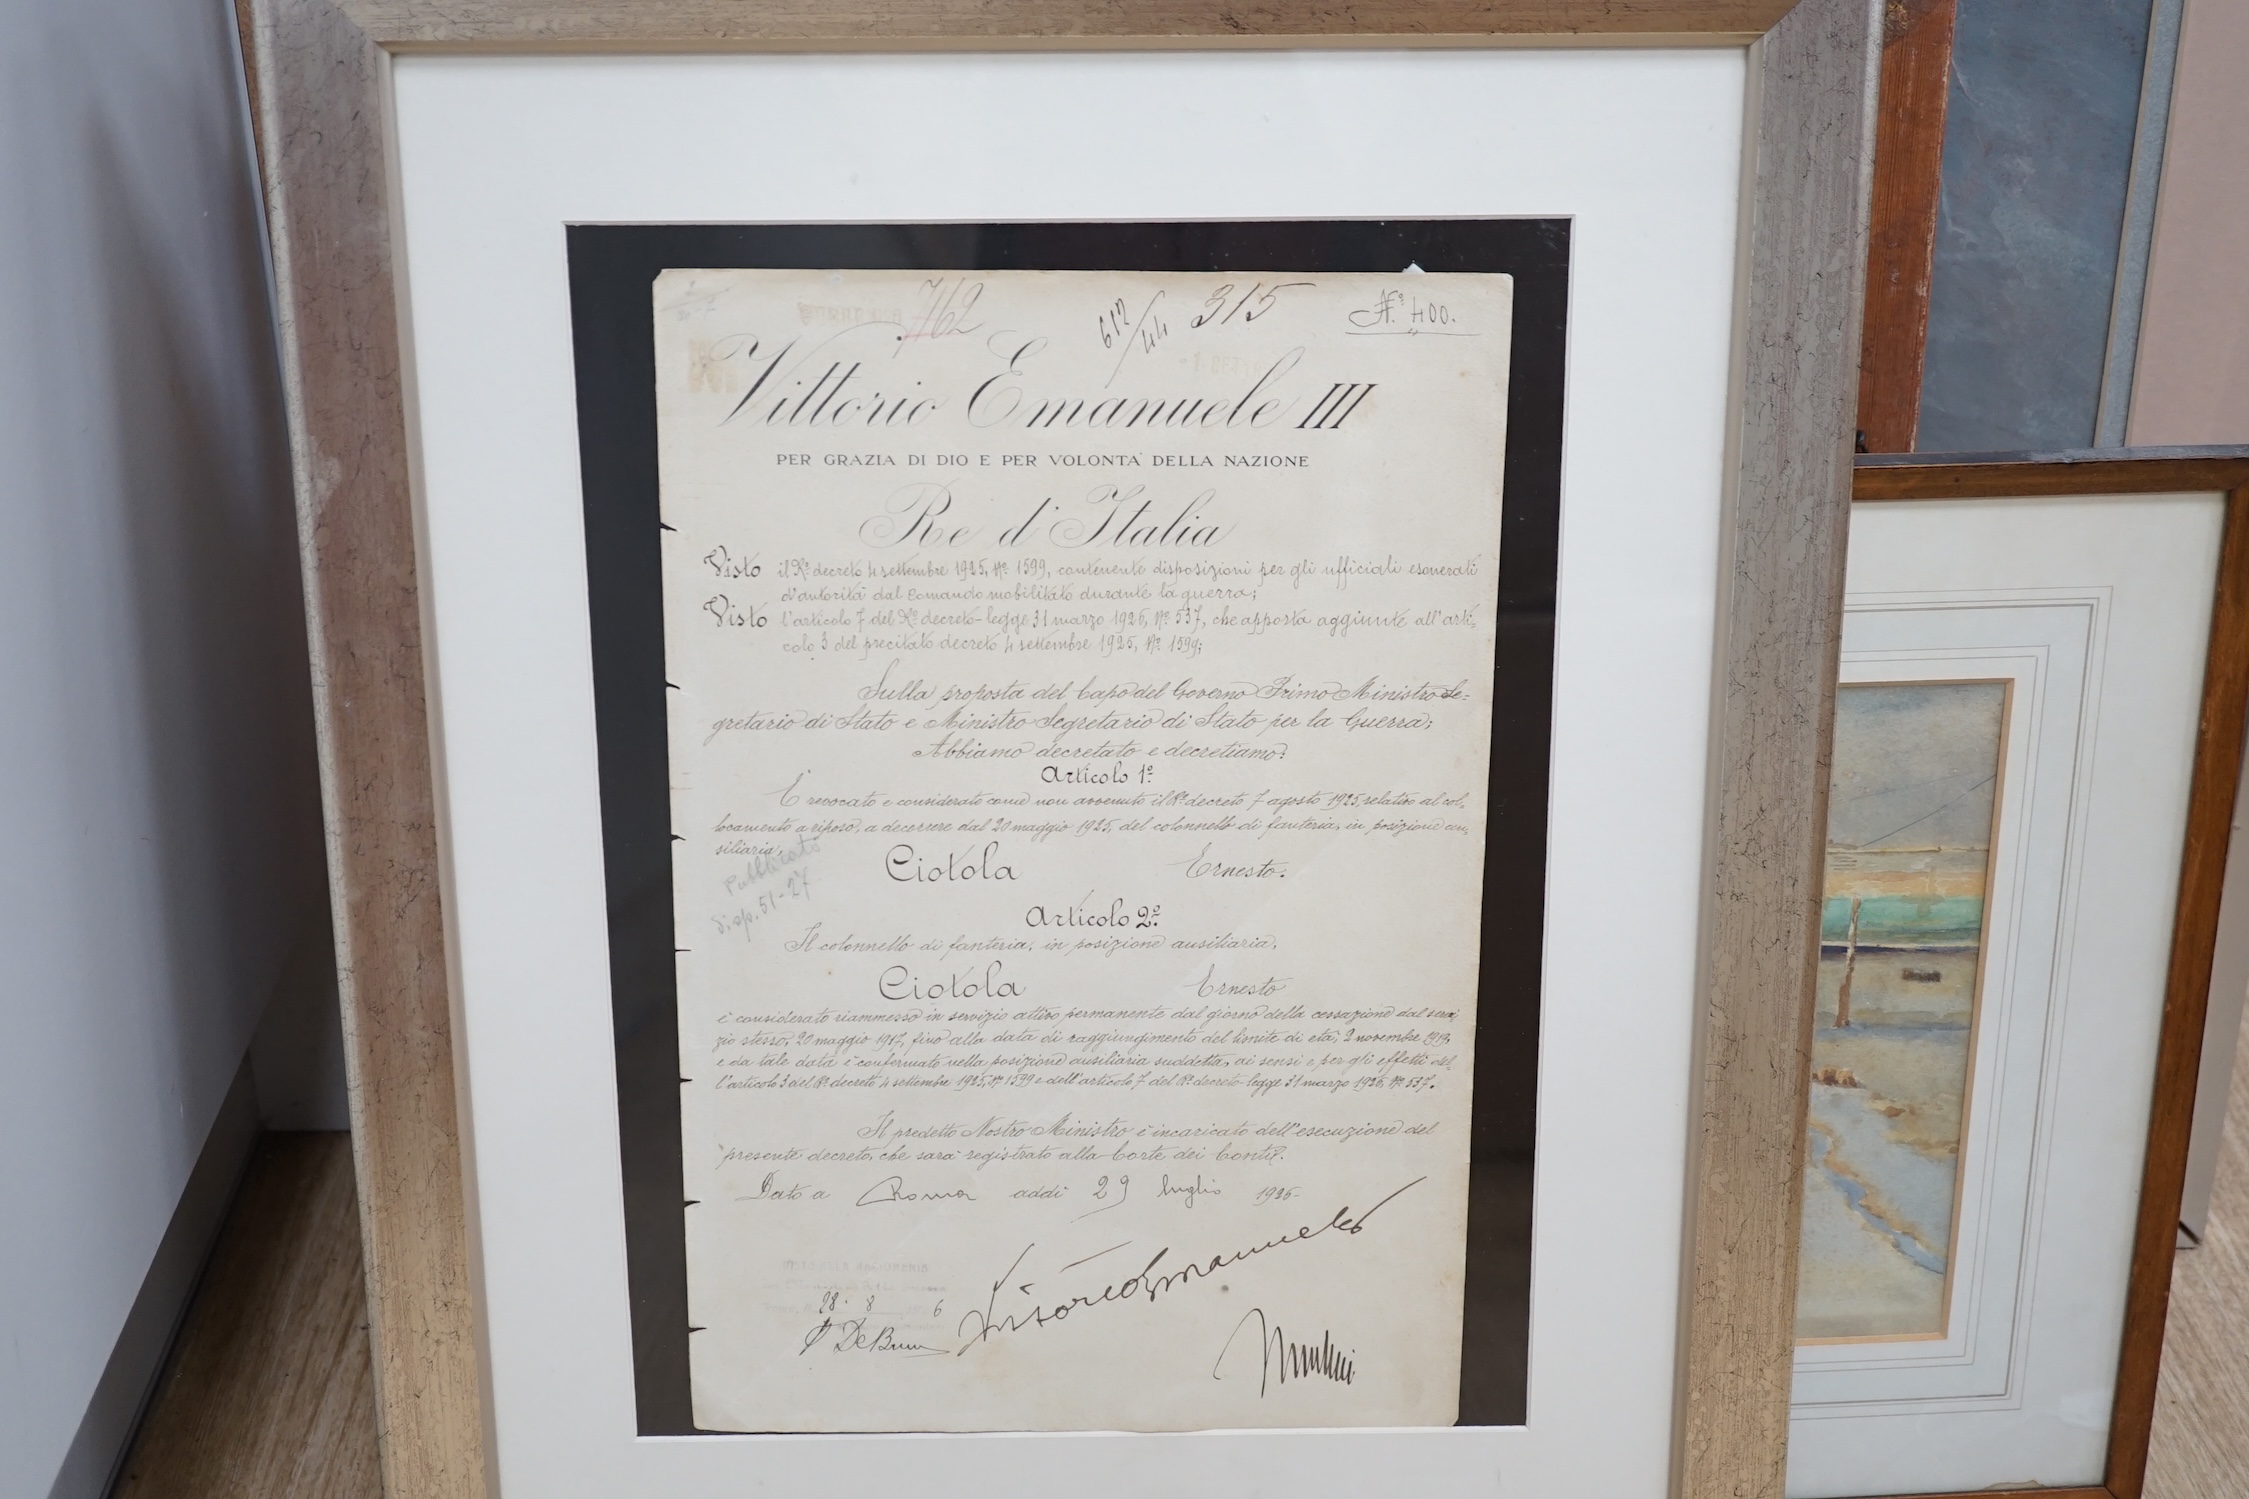 762
612/44
315
N.º 400.
Vittorio Emanuele III
PER GRAZIA DI DIO E PER VOLONTA' DELLA NAZIONE
Re d'Italia
Visto il R.º decreto 4 settembre 1925, N.º 1599, contenente disposizioni per gli ufficiali esonerati
d'autorità dal Comando mobilitato durante la guerra;
Visto l'articolo 7 del R.º decreto-legge 31 marzo 1926, N.º 537, che apporta aggiunte all'arti-
colo 3 del precitato decreto 4 settembre 1925, N.º 1599;
Sulla proposta del Capo del Governo Primo Ministro Se-
gretario di Stato e Ministro Segretario di Stato per la Guerra;
Abbiamo decretato e decretiamo:
Articolo 1º
È revocato e considerato come non avvenuto il R.º decreto 7 agosto 1925, relativo al col-
locamento a riposo, a decorrere dal 20 maggio 1925, del colonnello di fanteria, in posizione au-
siliaria,
Ciotola Ernesto.
Pubblicato
disp. 51-27
Articolo 2º
Il colonnello di fanteria, in posizione ausiliaria,
Ciotola Ernesto
è considerato riammesso in servizio attivo permanente dal giorno della cessazione dal servi-
zio stesso, 20 maggio 1917, fino alla data di raggiungimento del limite di età, 2 novembre 1919,
e da tale data è confermato nella posizione ausiliaria suddetta, ai sensi e per gli effetti del-
l'articolo 3 del R.º decreto 4 settembre 1925, N.º 1599 e dell'articolo 7 del R.º decreto-legge 31 marzo 1926, N.º 537.
Il predetto Nostro Ministro è incaricato dell'esecuzione del
presente decreto, che sarà registrato alla Corte dei Conti.
Dato a Roma addì 29 luglio 1926
Vittorio Emanuele
28. 8 6
Mussolini